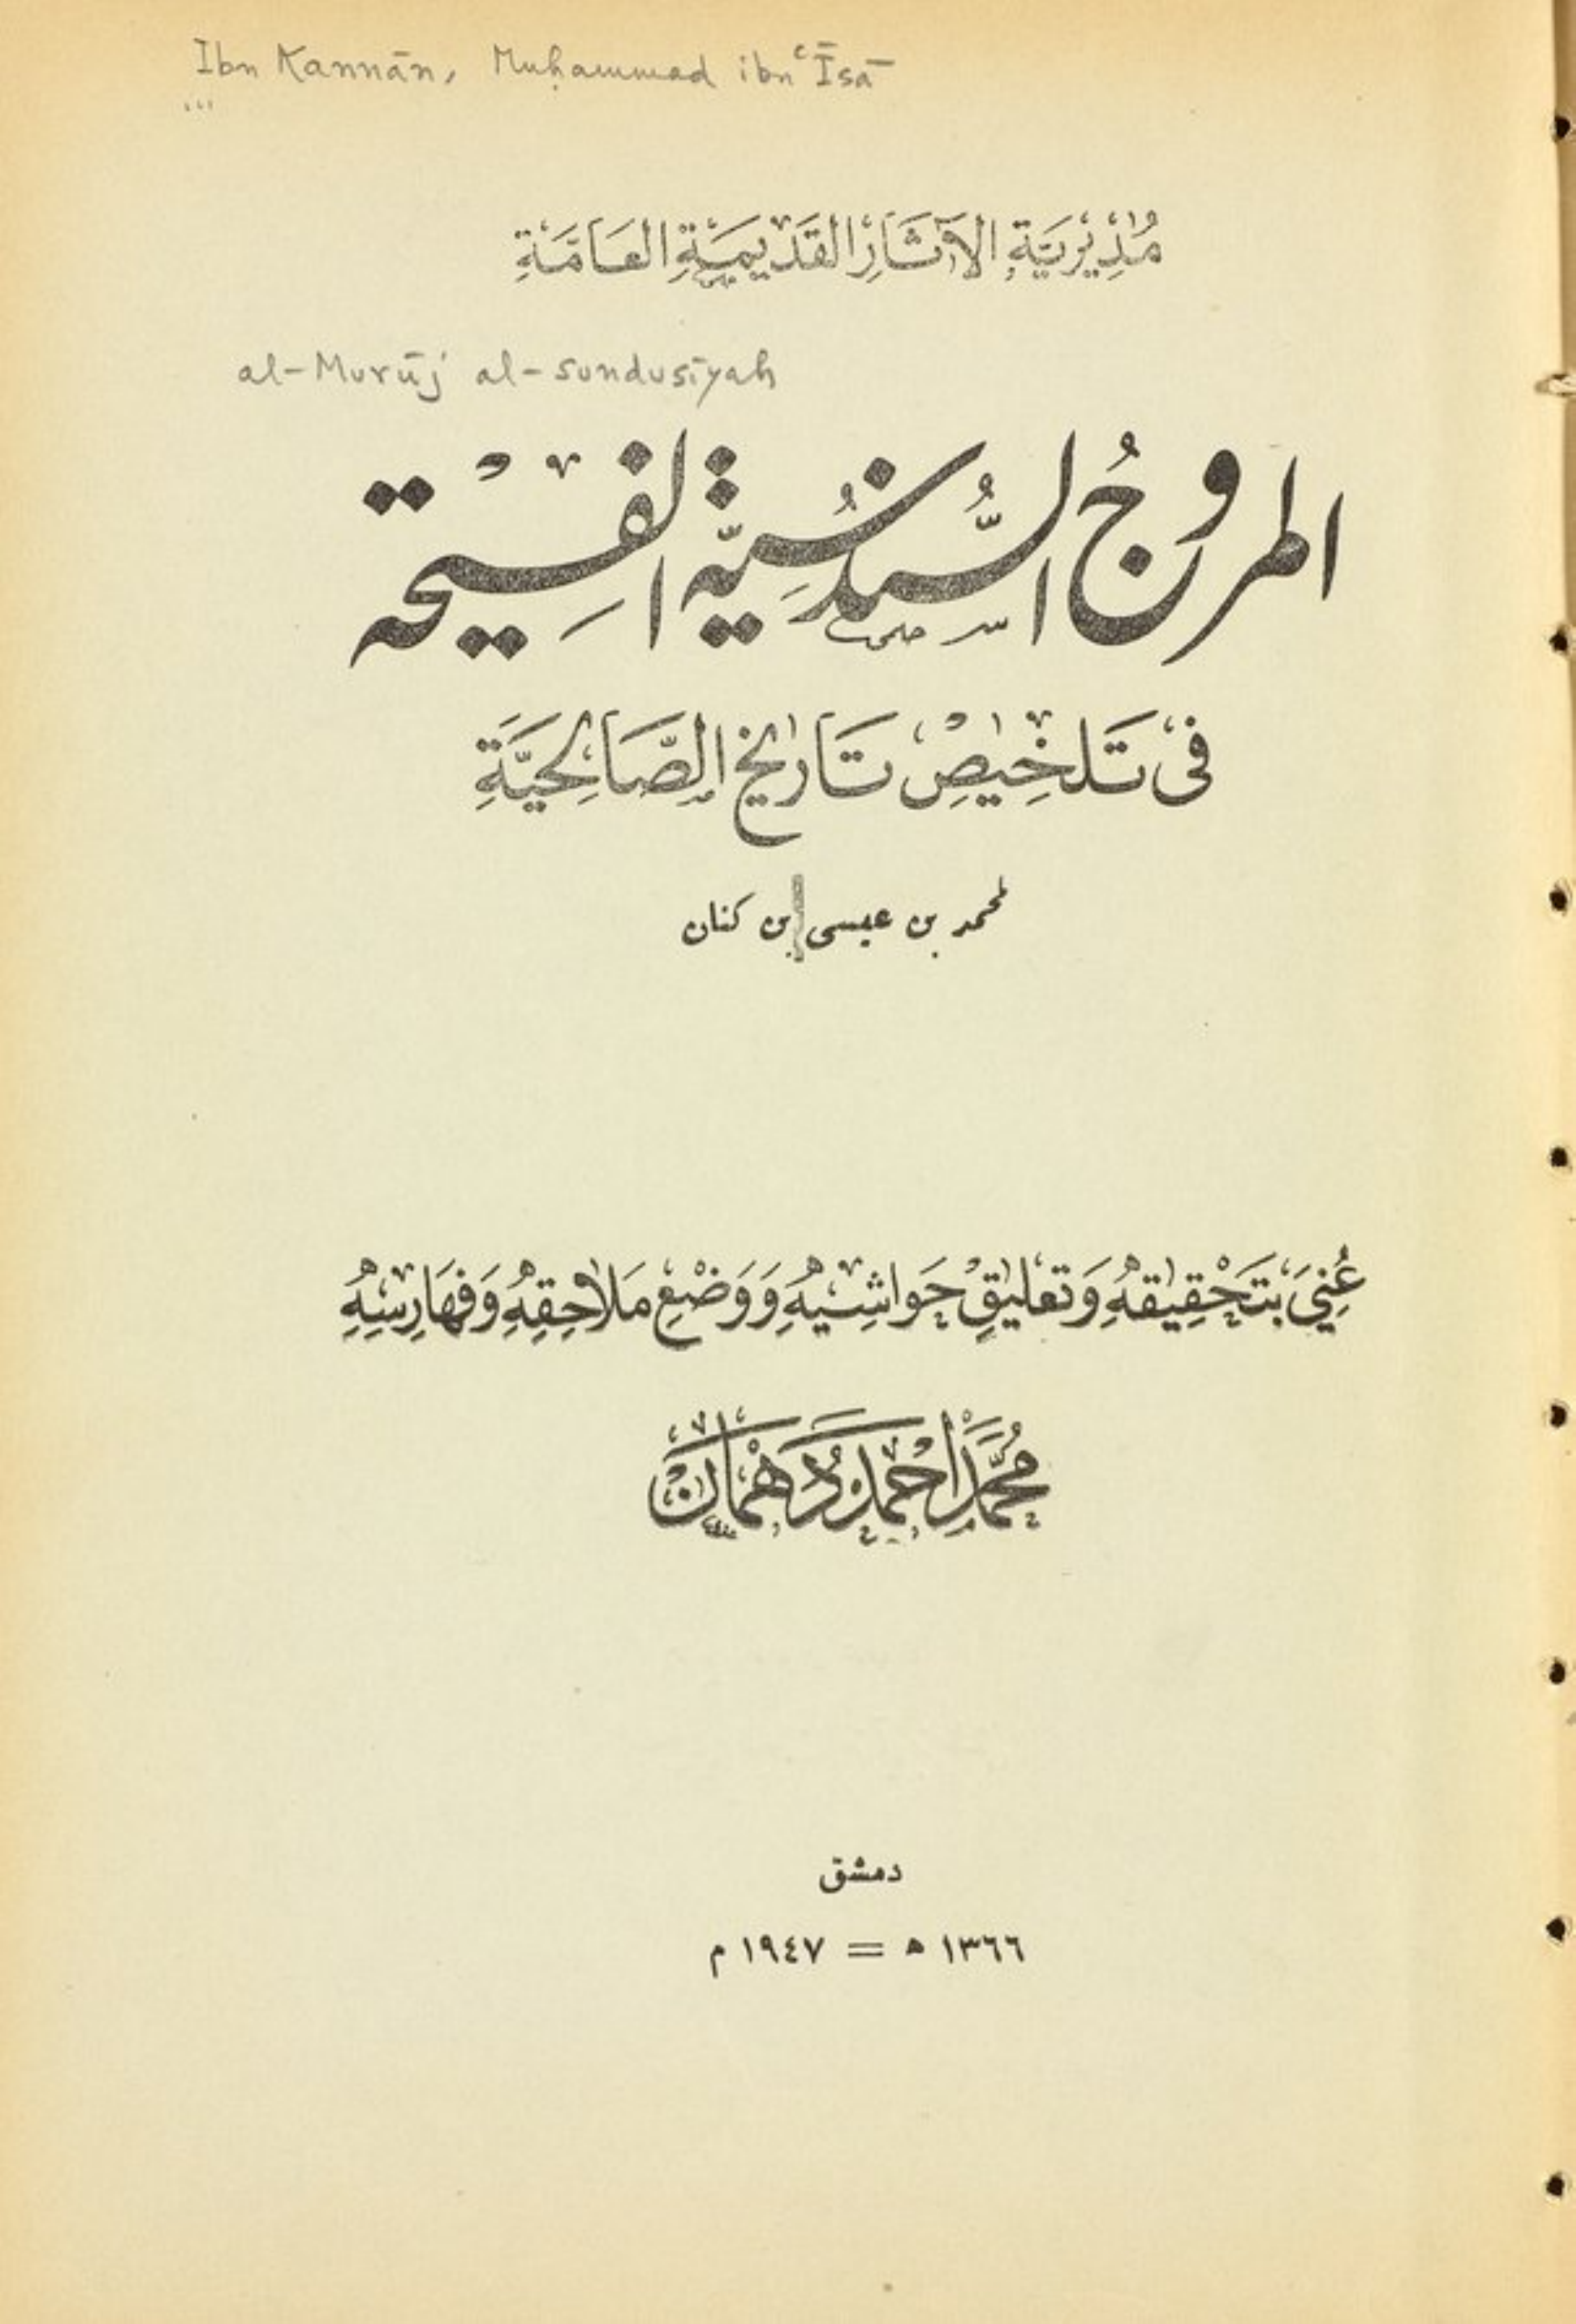 Ibn Kannān, Muḥammad ibn ʿĪsā
...
مُدِيْرِيَّةِ الآثَارِ القَدِيمَةِ العَامَّةِ
al-Murūj al-sundusīyah
المروجُ السُّندُسِيَّة الفسِيْحَة
فى تَلخِيْصِ تَاريْخ الصَّالِحيَّةِ
لمحمد بن عيسى بن كنان
عُنِيَ بتَحْقِيْقِهِ وَتعليْقِ حَواشِيْهِ وَوَضْعِ مَلاحِقِهِ وَفهَارِسِهِ
مُحَمَّد اَحْمَد دُهْمَان
دمشق
١٣٦٦ ه = ١٩٤٧ م